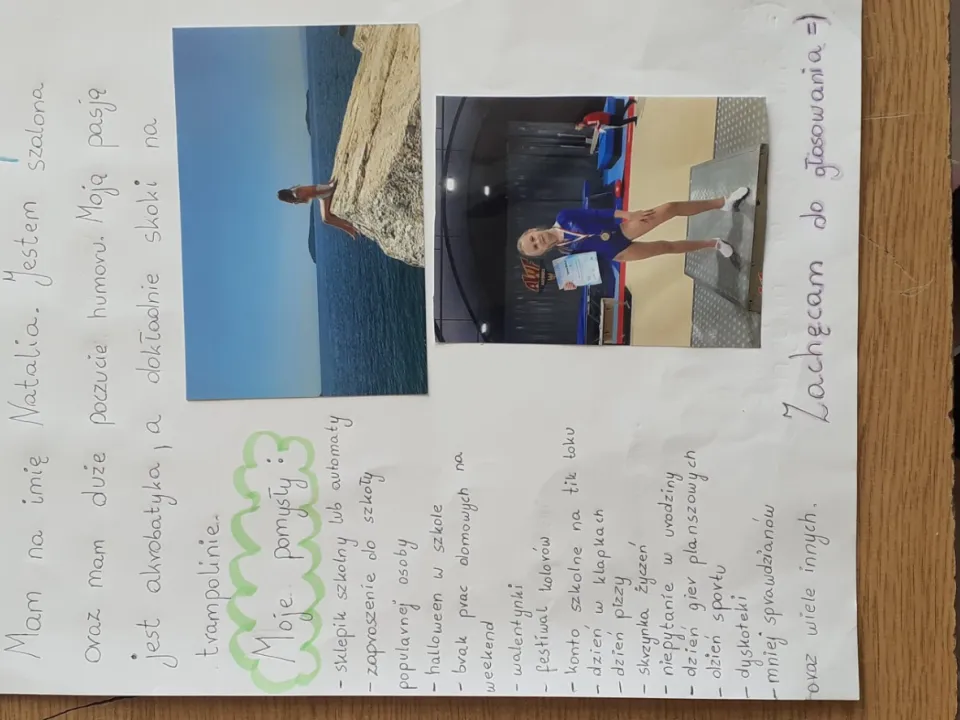 Mam na imię Natalia. Jestem szalona
oraz mam duże poczucie humoru. Moją pasją
jest akrobatyka, a dokładnie skoki na
trampolinie.
Moje pomysły:
- sklepik szkolny lub automaty
- zaproszenie do szkoły
popularnej osoby
- halloween w szkole
- brak prac domowych na
weekend
- walentynki
- festiwal kolorów
- konto szkolne na tik toku
- dzień w klapkach
- dzień pizzy
- skrzynka życzeń
- niepytanie w urodziny
- dzień gier planszowych
- dzień sportu
- dyskoteki
- mniej sprawdzianów
oraz wiele innych.
Zachęcam do głosowania =)